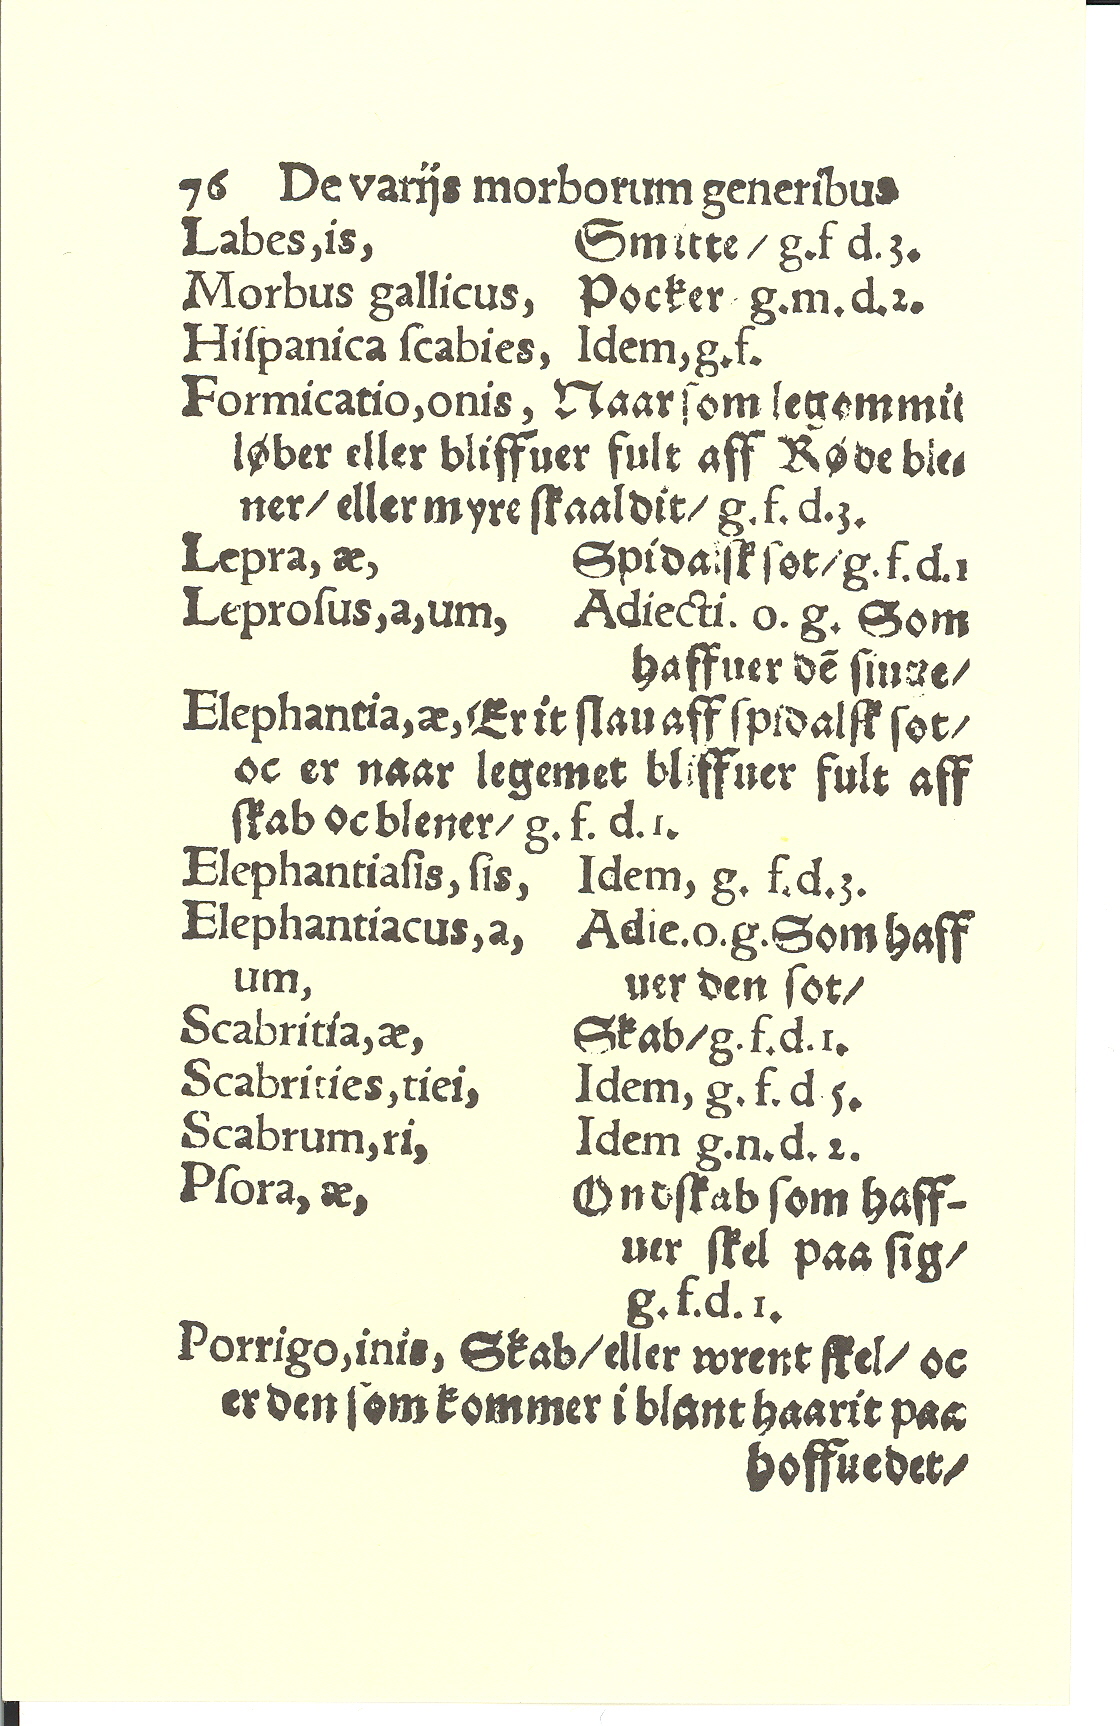 76 De varijs morborum generibus
Labes,is, Smitte / g.f d.3.
Morbus gallicus, Pocker g.m.d.2.
Hiſpanica ſcabies, Idem,g.f.
Formicatio,onis, Naar ſom legommit
løber eller bliffuer fult aff Røde ble-
ner/ eller myre ſkaaldit/ g.f.d.3.
Lepra, æ, Spidalſk ſot/g.f.d.1
Leproſus,a,um, Adiecti. o. g. Som
haffuer dē ſiuge/
Elephantia,æ, Er it ſlau aff ſpidalſk ſot/
oc er naar legemet bliffuer fult aff
ſkab oc blener/ g. f. d. 1.
Elephantiaſis, ſis, Idem, g. f.d.3.
Elephantiacus,a, Adie.o.g.Som haff
um, uer den ſot/
Scabritia,æ, Skab/g.f.d.1.
Scabrities,tiei, Idem, g. f. d 5.
Scabrum,ri, Idem g.n.d. 2.
Pſora, æ, Ondſkab ſom haff-
uer ſkel paa ſig/
g. f.d. 1.
Porrigo,inis, Skab/eller wrent ſkel/ oc
er den ſom kommer i blant haarit paa
hoffuedet/